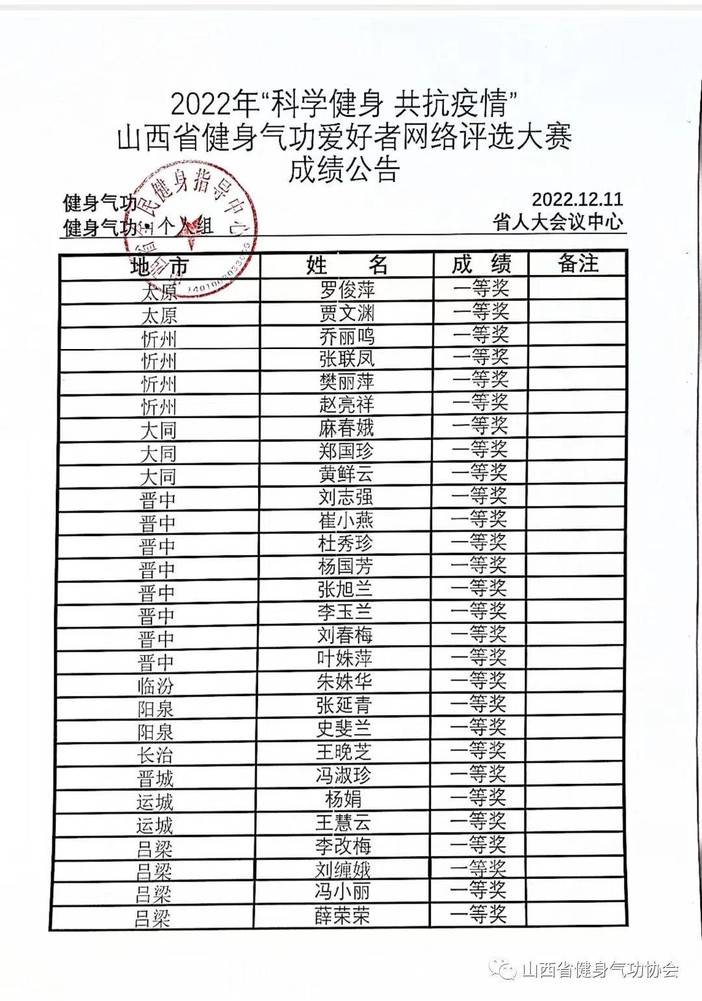 2022年“科学健身 共抗疫情”
山西省健身气功爱好者网络评选大赛
成绩公告
健身气功 2022.12.11
健身气功·个人组 省人大会议中心
地 市 姓 名 成 绩 备注
太原 罗俊萍 一等奖
太原 贾文渊 一等奖
忻州 乔丽鸣 一等奖
忻州 张联凤 一等奖
忻州 樊丽萍 一等奖
忻州 赵亮祥 一等奖
大同 麻春娥 一等奖
大同 郑国珍 一等奖
大同 黄鲜云 一等奖
晋中 刘志强 一等奖
晋中 崔小燕 一等奖
晋中 杜秀珍 一等奖
晋中 杨国芳 一等奖
晋中 张旭兰 一等奖
晋中 李玉兰 一等奖
晋中 刘春梅 一等奖
晋中 叶姝萍 一等奖
临汾 朱姝华 一等奖
阳泉 张延青 一等奖
阳泉 史斐兰 一等奖
长治 王晚芝 一等奖
晋城 冯淑珍 一等奖
运城 杨娟 一等奖
运城 王慧云 一等奖
吕梁 李改梅 一等奖
吕梁 刘缠娥 一等奖
吕梁 冯小丽 一等奖
吕梁 薛荣荣 一等奖
山西省健身气功协会